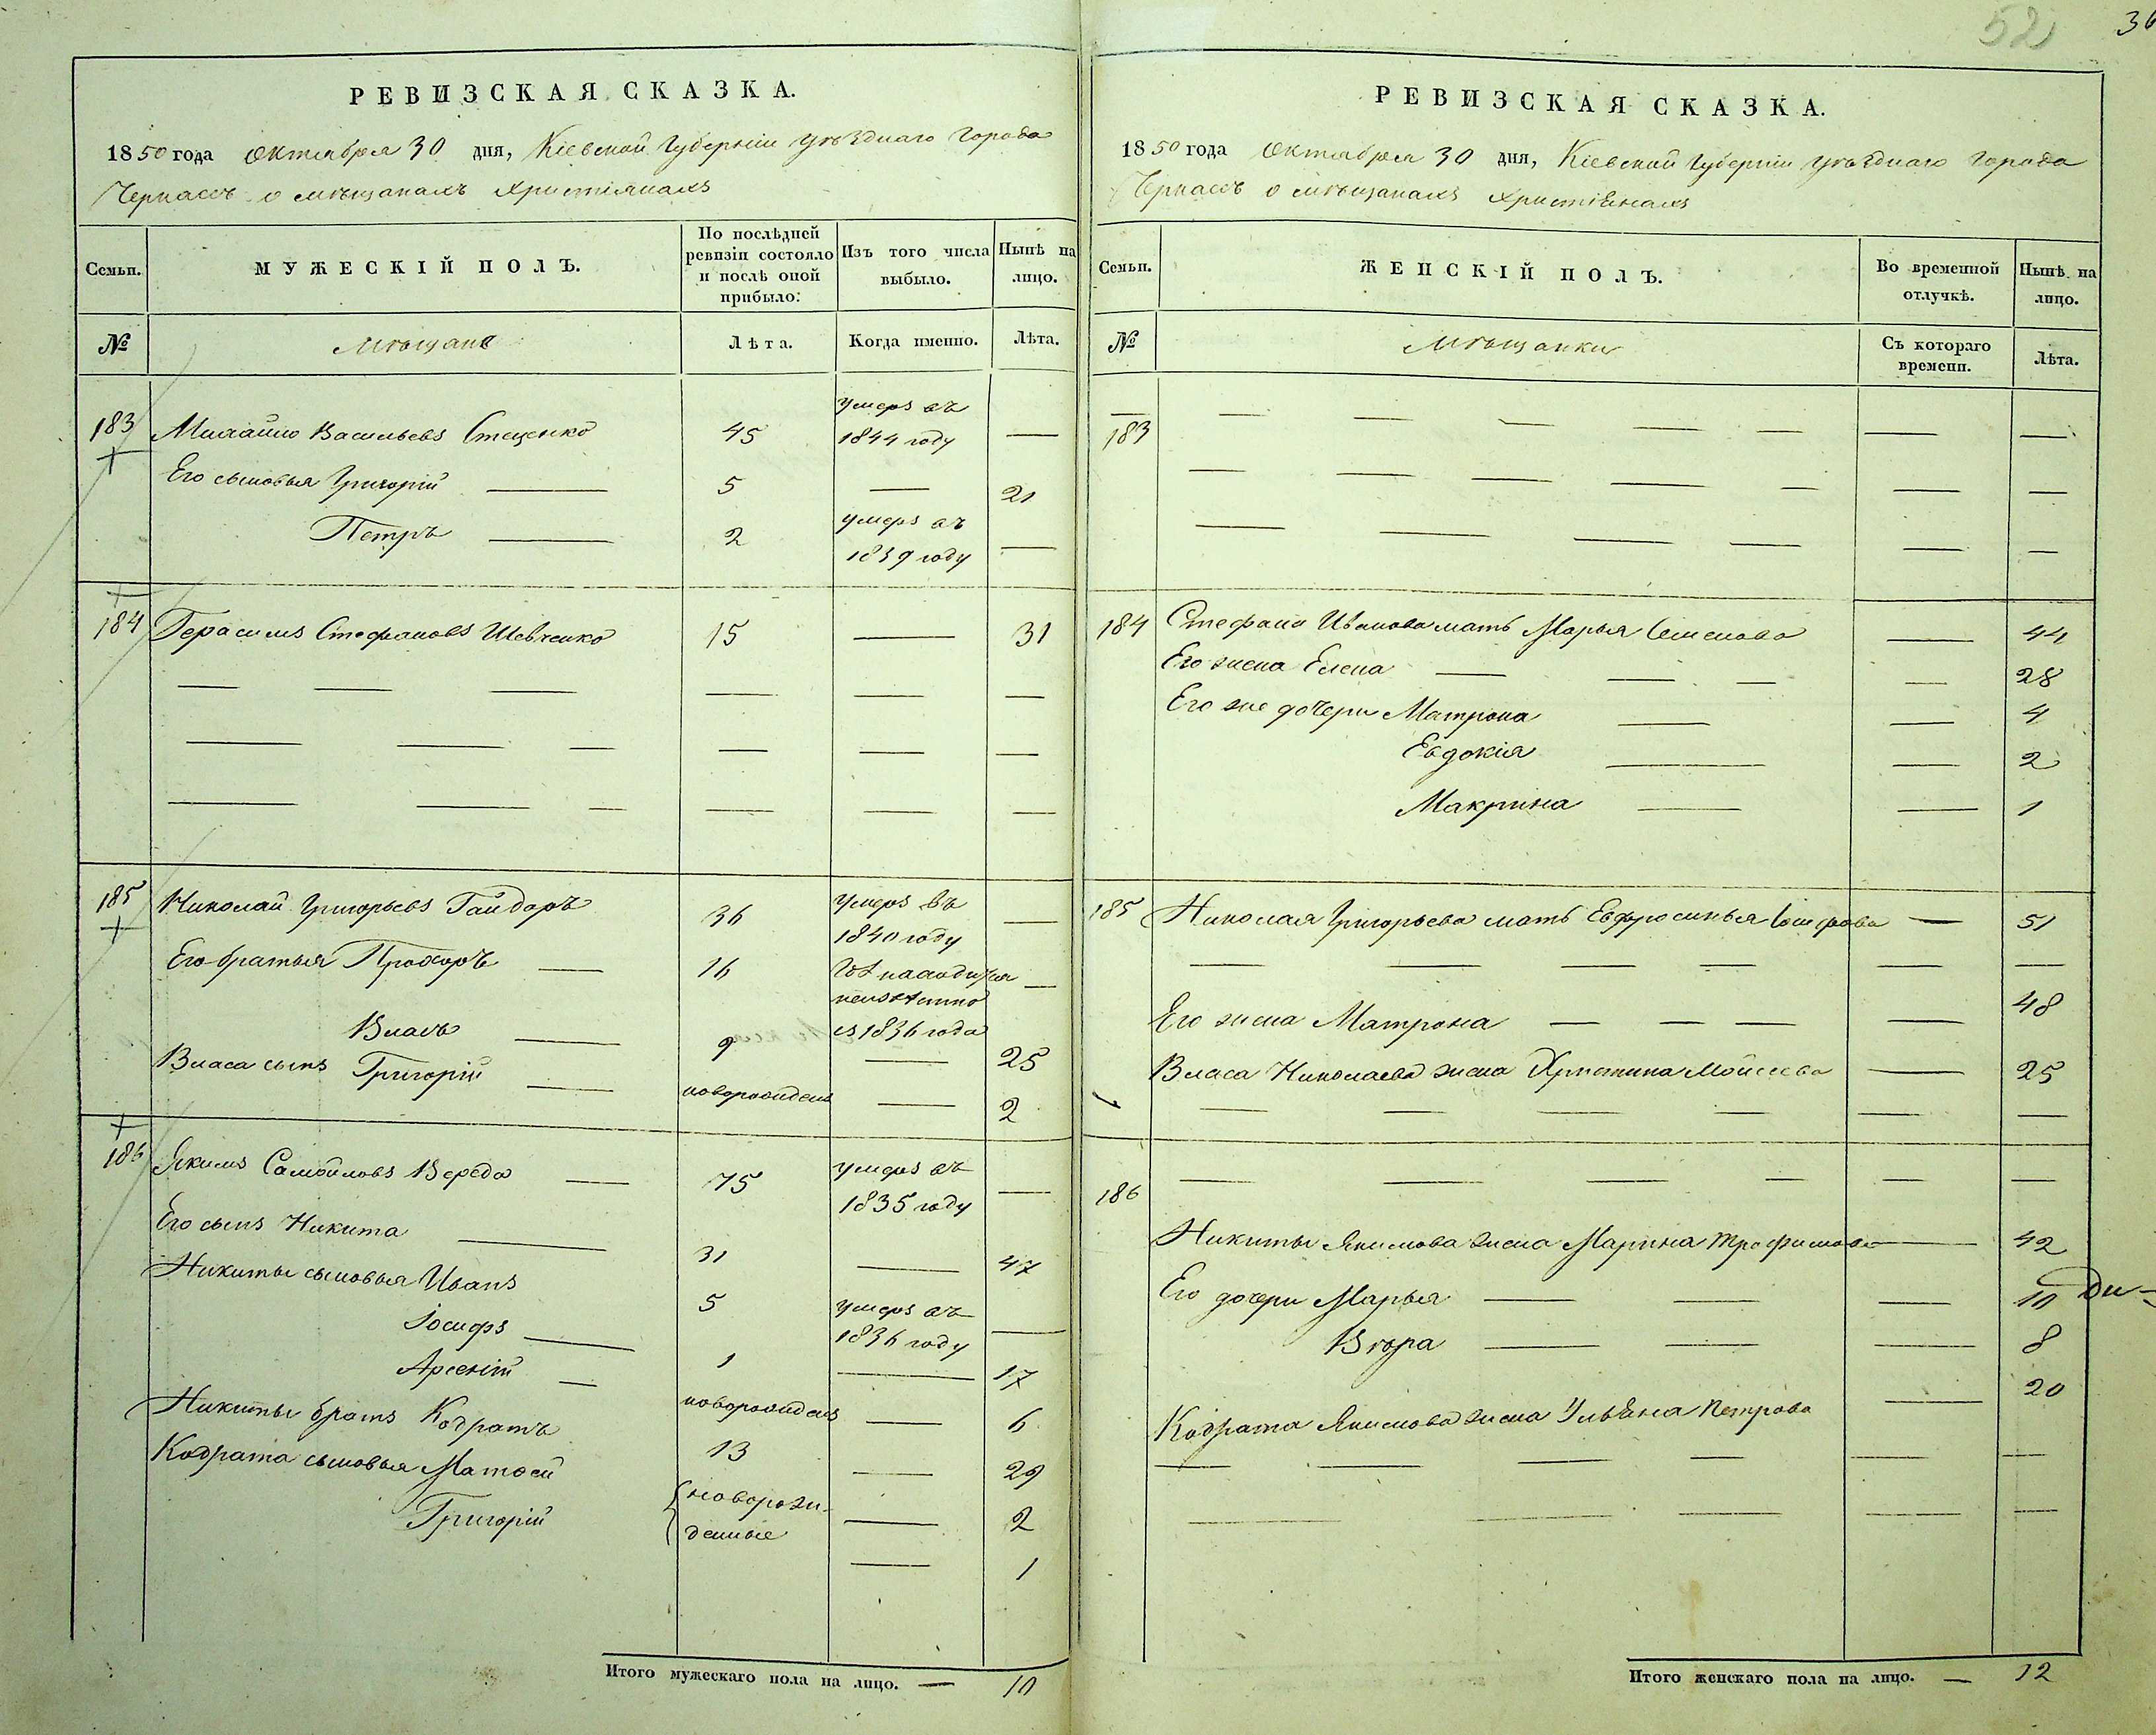 52
36
РЕВИЗСКАЯ СКАЗКА.
1850 года Октября 30 дня, Кіевской Губерніи уѣзднаго города
Черкасъ о мѣщанахъ Христіянахъ
Семьи.
МУЖЕСКІЙ ПОЛЪ.
По послѣдней ревизіи состояло и послѣ оной прибыло:
Изъ того числа выбыло.
Нынѣ на лицо.
№
Мѣщане
Лѣта.
Когда именно.
Лѣта.
183 Михайло Васильевъ Стеценко 45 умеръ въ 1844 году —
Его сыновья Григорій — 5 — 21
Петръ — 2 умеръ въ 1839 году —
184 Герасимъ Стефановъ Шевченко 15 — 31
185 Николай Григорьевъ Гайдаръ 36 умеръ въ 1840 году —
Его братья Прохоръ — 16 съ 1836 года —
Власъ — 9 — 25
Власа сынъ Григорій — новорожденъ — 2
186 Якимъ Самойловъ Вереда — 75 умеръ въ 1835 году —
Его сынъ Никита — 31 — 47
Никиты сыновья Иванъ 5 умеръ въ 1836 году —
Іосифъ — 1 — 17
Арсеній — новорожденъ — 6
Никиты братъ Кодратъ 13 — 29
Кодрата сыновья Матвей {новорож- — 2
Григорій денные — 1
Итого мужескаго пола на лицо. — 10
РЕВИЗСКАЯ СКАЗКА.
1850 года Октября 30 дня, Кіевской Губерніи уѣзднаго города
Черкасъ о мѣщанахъ Христіянахъ
Семьи.
ЖЕНСКІЙ ПОЛЪ.
Во временной отлучкѣ.
Нынѣ на лицо.
№
Мѣщанки
Съ котораго времени.
Лѣта.
183
184 Стефана Иванова мать Марья Семенова — 44
Его жена Елена — 28
Его же дочери Матрона — 4
Евдокія — 2
Макрина — 1
185 Николая Григорьева мать Евфросинья — 51
Его жена Матрона — 48
Власа Николаева жена Христина Мойсеева — 25
186
Никиты Якимова жена Марина Трофимова — 42
Его дочери Марья — 10
Вѣра — 8
Кодрата Якимова жена Ульяна Петрова — 20
Итого женскаго пола на лицо. — 12